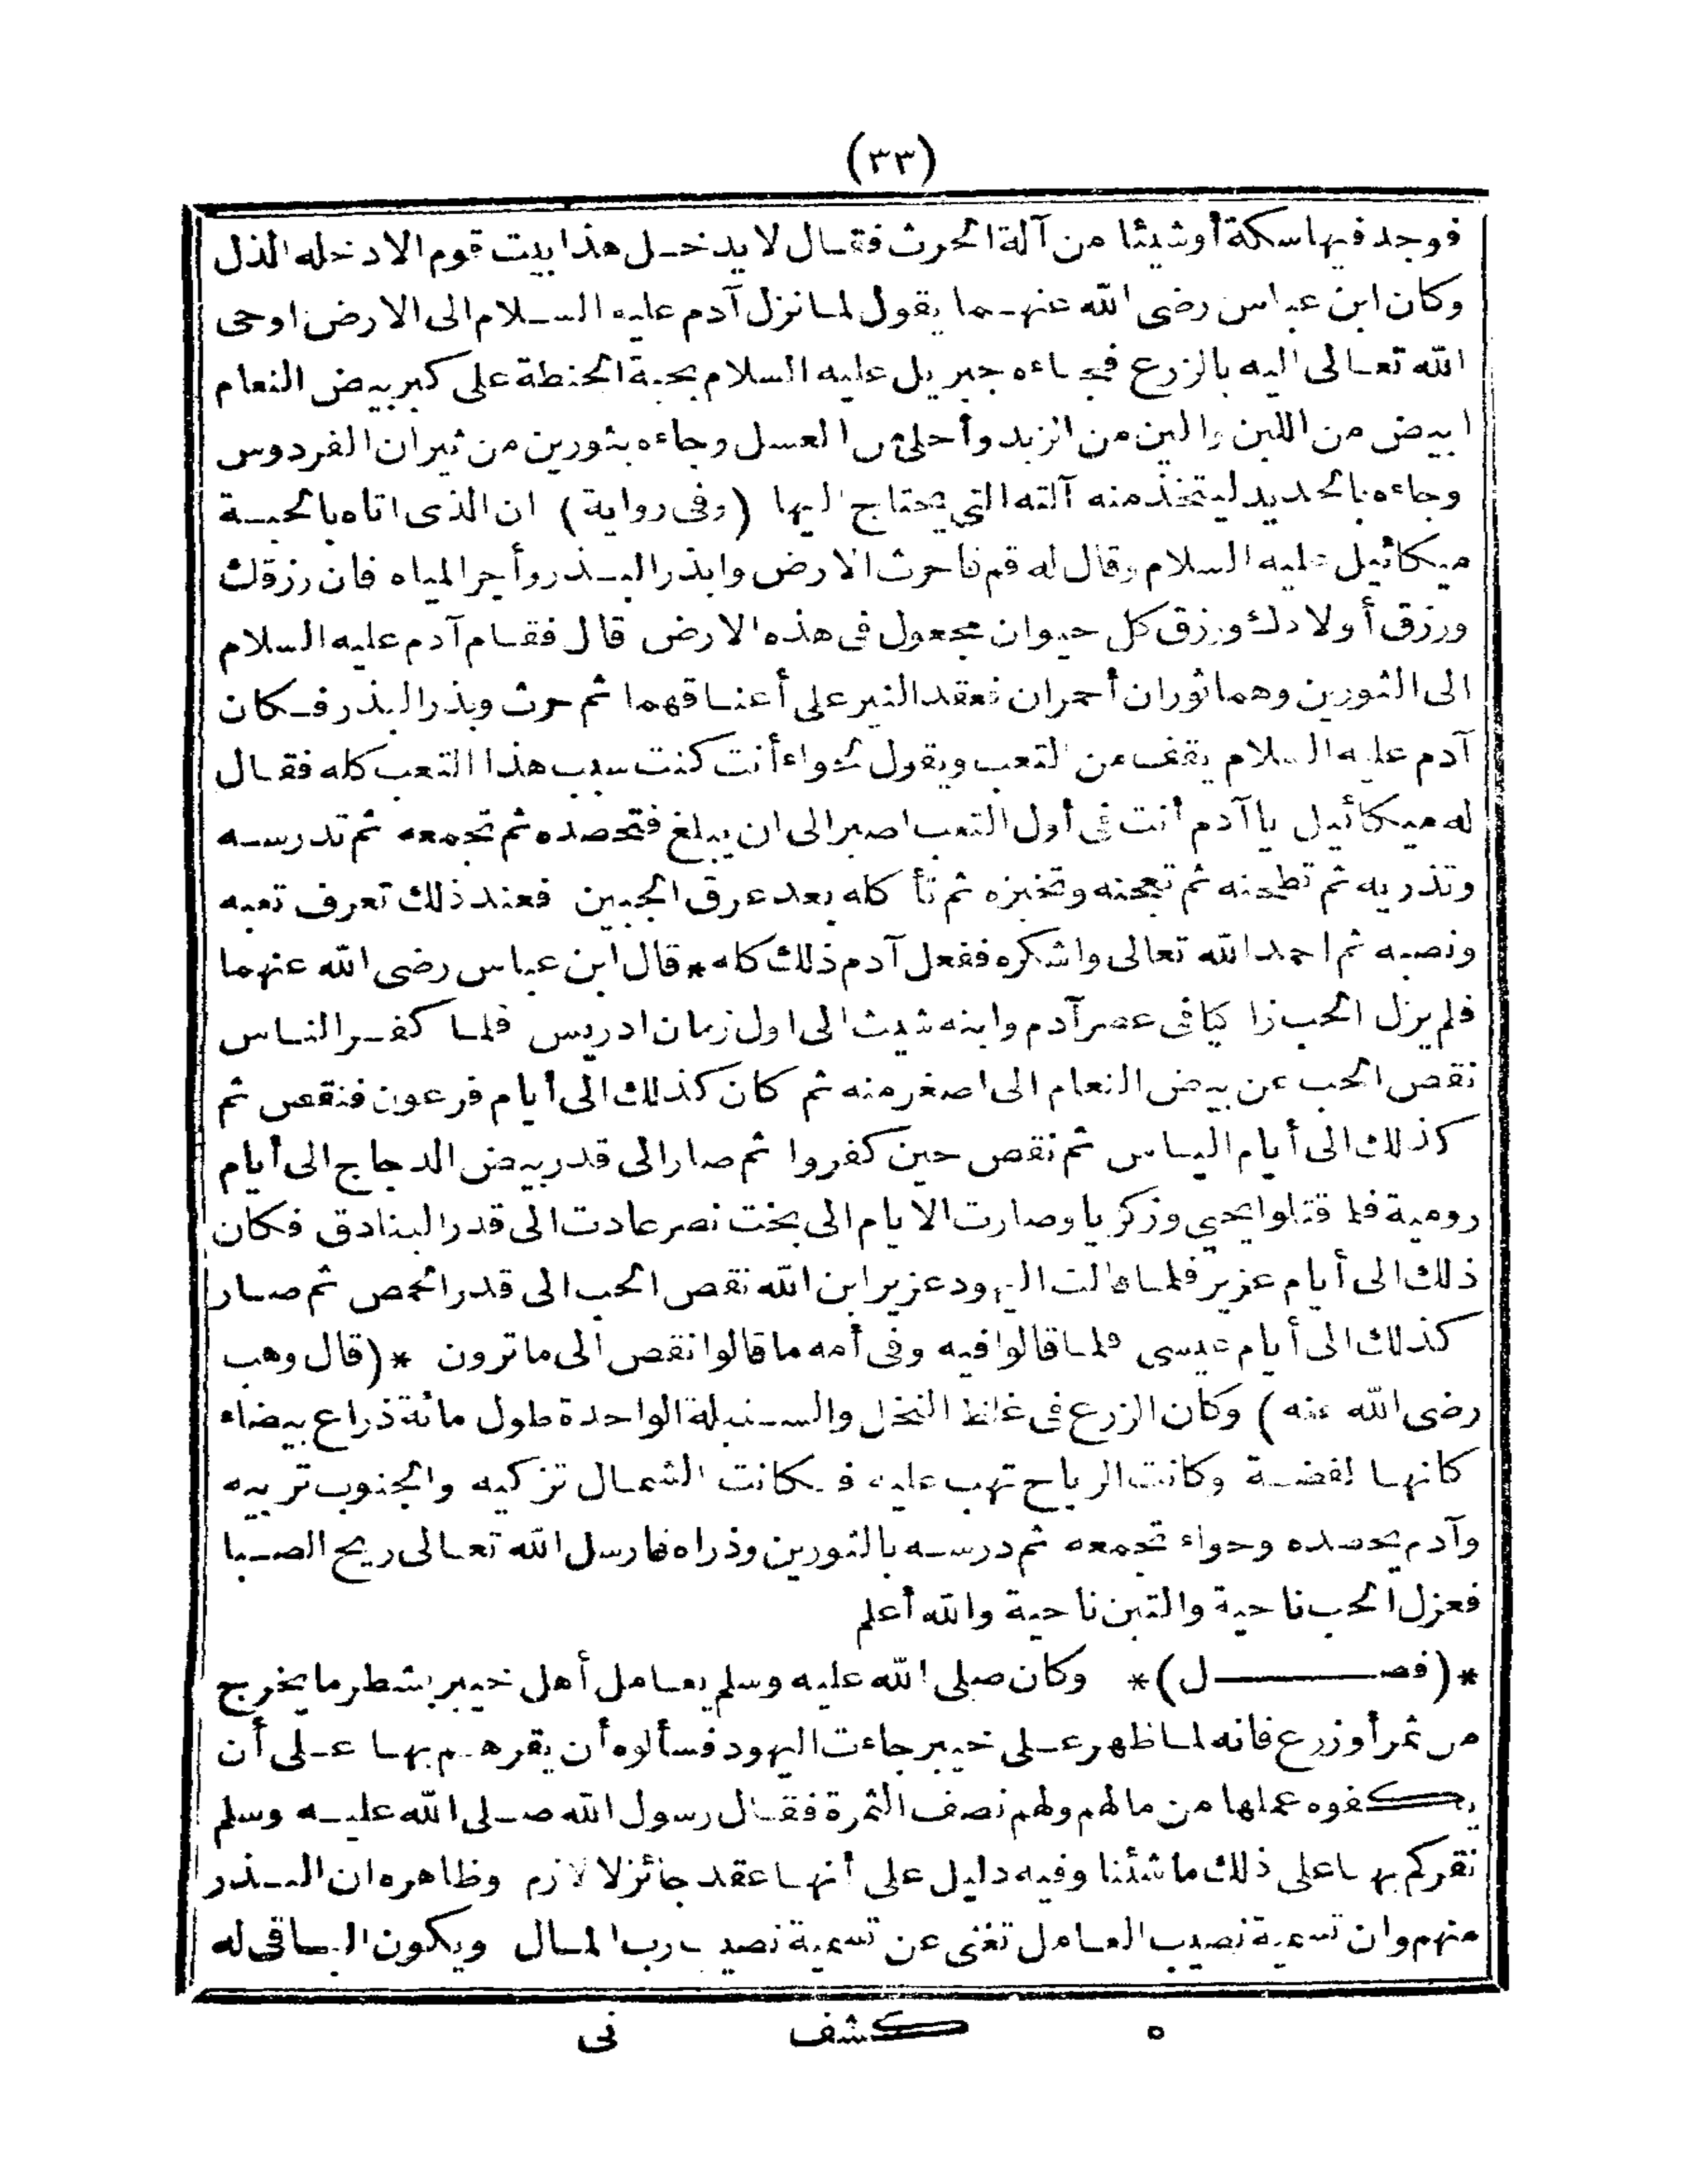 (٣٣)
فوجد فيها سكة أو شيئا من آلة الحرث فقال لا يدخل هذا بيت قوم الا دخله الذل
وكان ابن عباس رضى الله عنهما يقول لما نزل آدم عليه السلام الى الارض اوحى
الله تعالى اليه بالزرع فجاءه جبريل عليه السلام بحبة الحنطة على كبر بيض النعام
ابيض من اللبن والين من الزبد وأحلى من العسل وجاءه بثورين من ثيران الفردوس
وجاءه بالحديد ليتخذ منه آلته التى يحتاج اليها (وفى رواية) ان الذى اتاه بالحبة
ميكائيل عليه السلام وقال له قم فاحرث الارض وابذر البذر وأجر المياه فان رزقك
ورزق أولادك ورزق كل حيوان مجعول فى هذه الارض قال فقام آدم عليه السلام
الى الثورين وهما ثوران أحمران فعقد النير على أعناقهما ثم حرث وبذر البذر فكان
آدم عليه السلام يقف من التعب ويقول لحواء أنت كنت سبب هذا التعب كله فقال
له ميكائيل يا آدم أنت فى أول التعب اصبر الى ان يبلغ فتحصده ثم تجمعه ثم تدرسه
وتذريه ثم تطحنه ثم تعجنه وتخبزه ثم تأكله بعد عرق الجبين فعند ذلك تعرف تعبه
ونصبه ثم احمد الله تعالى واشكره ففعل آدم ذلك كله * قال ابن عباس رضى الله عنهما
فلم يزل الحب زاكيا فى عصر آدم وابنه شيث الى اول زمان ادريس فلما كفر الناس
نقص الحب عن بيض النعام الى اصغر منه ثم كان كذلك الى أيام فرعون فنقص ثم
كذلك الى أيام الياس ثم نقص حين كفروا ثم صار الى قدر بيض الدجاج الى أيام
رومية فلما قتلوا يحيي وزكريا وصارت الايام الى بخت نصر عادت الى قدر البنادق فكان
ذلك الى أيام عزير فلما قالت اليهود عزير ابن الله نقص الحب الى قدر الحمص ثم صار
كذلك الى أيام عيسى فلما قالوا فيه وفى أمه ما قالوا نقص الى ما ترون *(قال وهب
رضى الله عنه) وكان الزرع فى غلظ النخل والسنبلة الواحدة طول مائة ذراع بيضاء
كانها لفضة وكانت الرياح تهب عليه فكانت الشمال تزكيه والجنوب تربيه
وآدم يحصده وحواء تجمعه ثم درسه بالثورين وذراه فارسل الله تعالى ريح الصبا
فعزل الحب ناحية والتبن ناحية والله أعلم
*(فصــل)* وكان صلى الله عليه وسلم يعامل أهل خيبر بشطر ما يخرج
من ثمر أو زرع فانه لما ظهر على خيبر جاءت اليهود فسألوه أن يقرهم بها على أن
يكفوه عملها من مالهم ولهم نصف الثمرة فقال رسول الله صلى الله عليه وسلم
نقركم بها على ذلك ما شئنا وفيه دليل على أنها عقد جائز لا لازم وظاهره ان البذر
منهم وان تسمية نصيب العامل تغنى عن تسمية نصيب رب المال ويكون الباقى له
٥ كشف نى